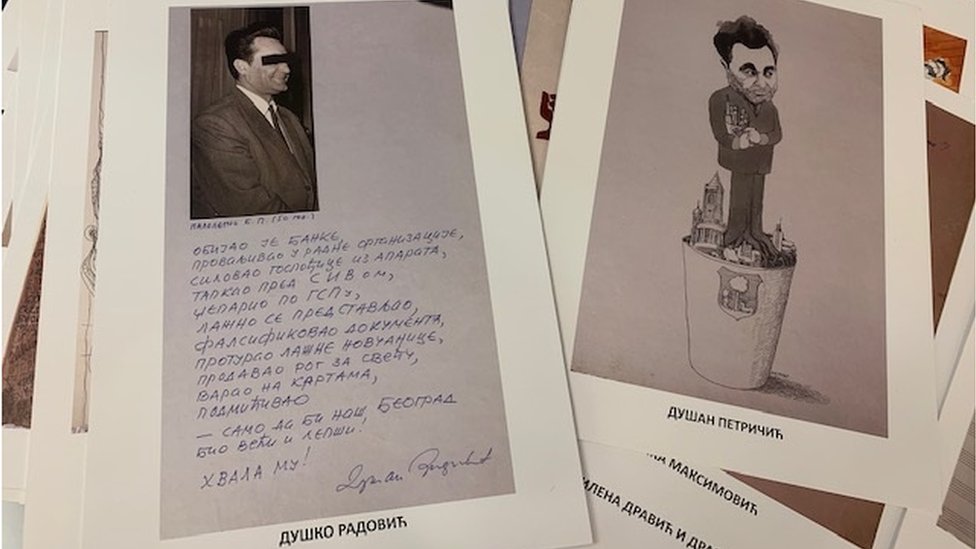 МАЛОЛЕТНИ Б. П. (50 год.)
ОБИЈАО ЈЕ БАНКЕ,
ПРОВАЉИВАО У РАДНЕ ОРГАНИЗАЦИЈЕ,
СИЛОВАО ГОСПОЂИЦЕ ИЗ АПАРАТА,
ТАПКАО ПРЕД СИВ ом,
ЏЕПАРИО ПО ГСПУ,
ЛАЖНО СЕ ПРЕДСТАВЉАО,
ФАЛСИФИКОВАО ДОКУМЕНТА,
ПРОТУРАО ЛАЖНЕ НОВЧАНИЦЕ,
ПРОДАВАО РОГ ЗА СВЕЋУ,
ВАРАО НА КАРТАМА,
ПОДМИЋИВАО
— САМО ДА БИ НАШ БЕОГРАД
БИО ВЕЋИ И ЛЕПШИ.
ХВАЛА МУ!
Душан Радовић
ДУШКО РАДОВИЋ
ДУШАН ПЕТРИЧИЋ
КА МАКСИМОВИЋ
ИЛЕНА ДРАВИЋ И ДРА